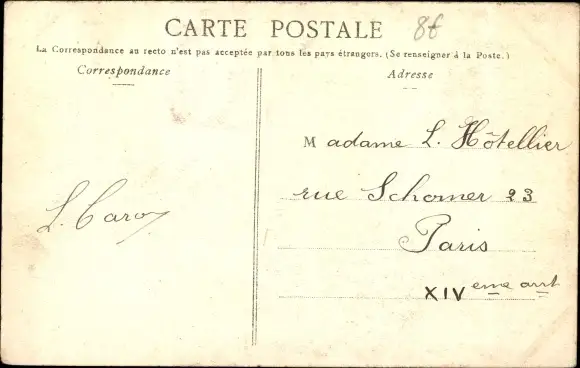 CARTE POSTALE
8f
La Correspondance au recto n'est pas acceptée par tous les pays étrangers. (Se renseigner à la Poste.)
Correspondance
Adresse
Madame L. Hôtellier
rue Schomer 23
Paris
XIV eme arrt
L. Caro